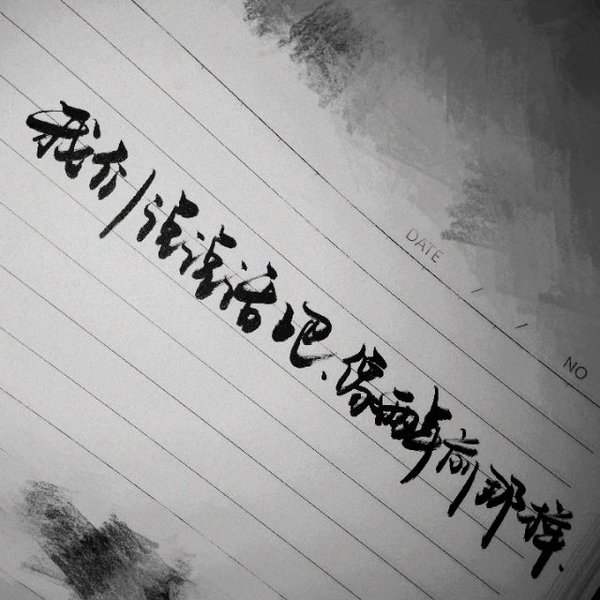 我们说说话吧、像两年前那样、
DATE / /
NO